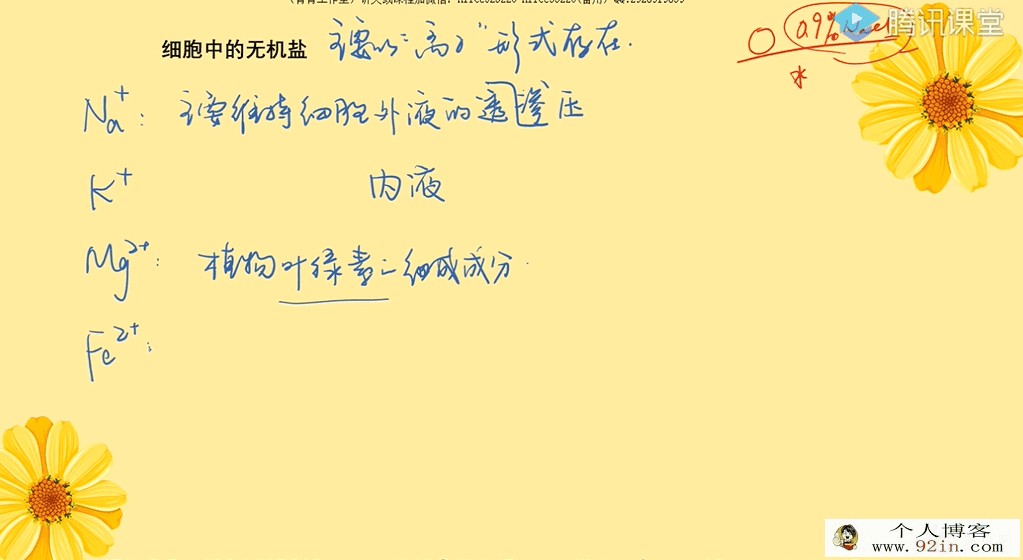 细胞中的无机盐 主要以"离子"形式存在.
0.9% Nacl
水
腾讯课堂
Na⁺: 主要维持细胞外液的透渗压
K⁺ 内液
Mg²⁺: 植物叶绿素组成成分.
Fe²⁺:
个人博客
www.92in.com